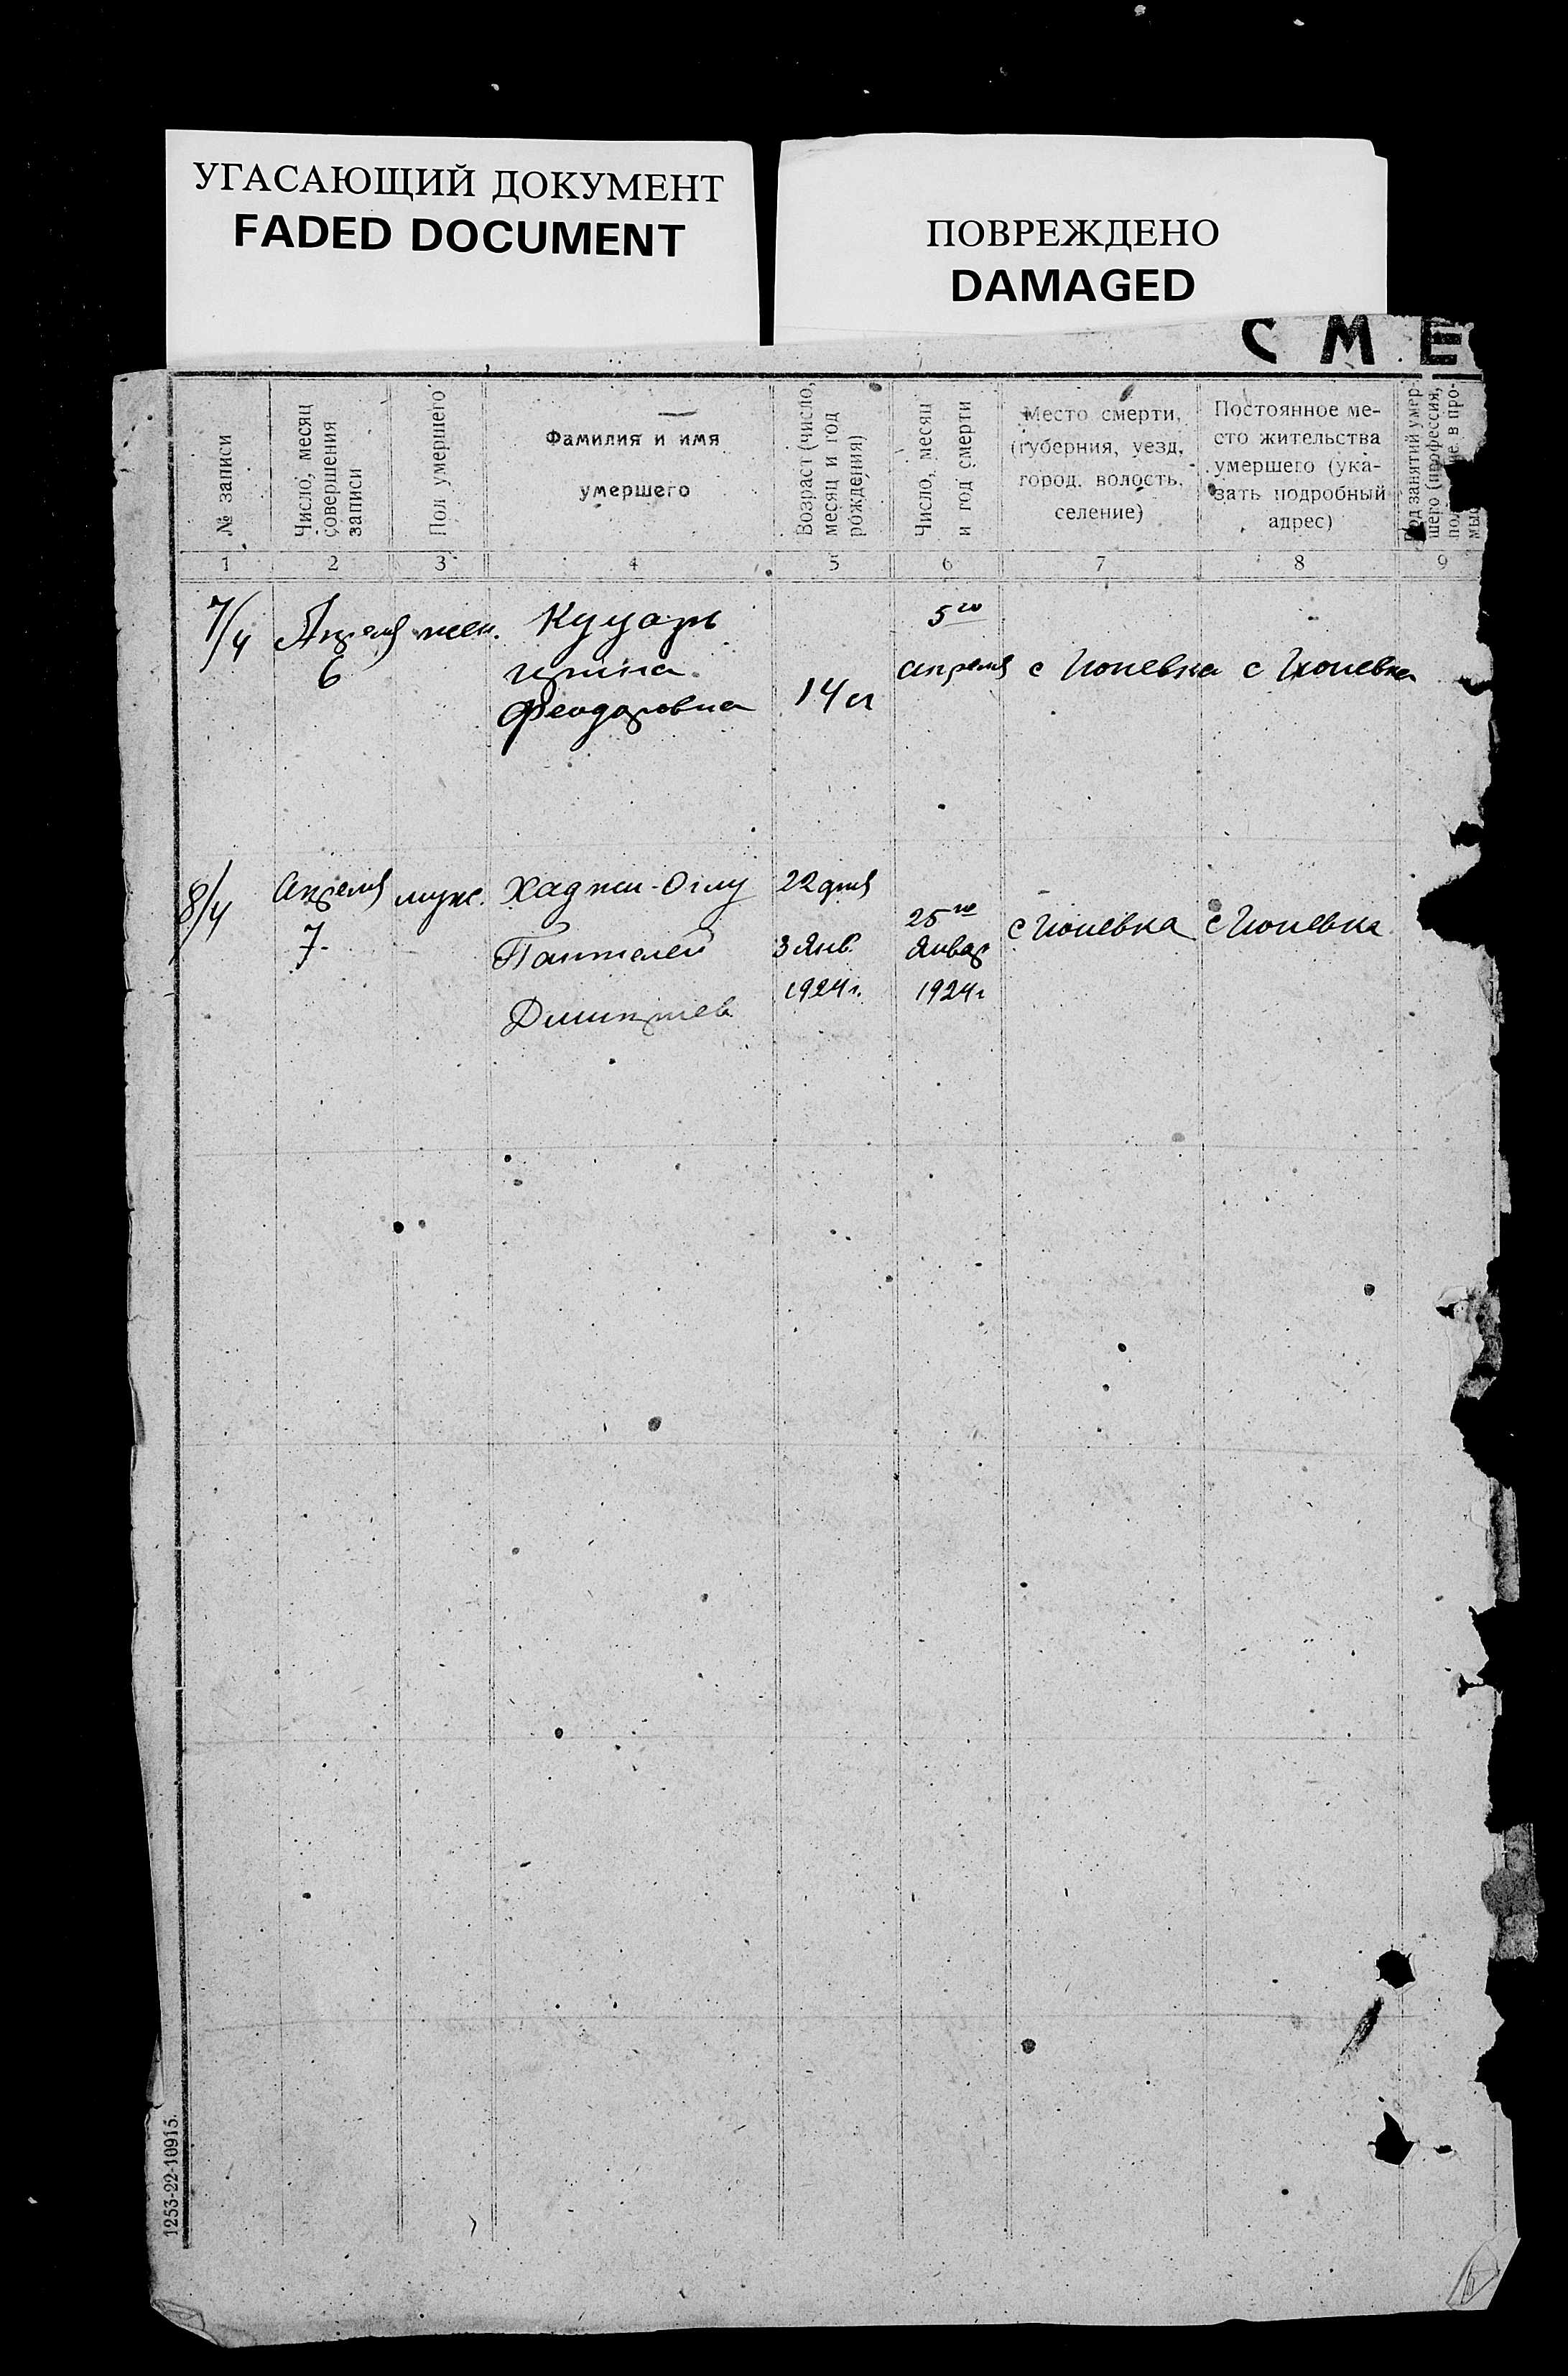 УГАСАЮЩИЙ ДОКУМЕНТ
FADED DOCUMENT
ПОВРЕЖДЕНО
DAMAGED
СМЕ
№ записи
Число, месяц
совершения
записи
Пол умершего
Фамилия и имя
умершего
Возраст (число,
месяц и год
рождения)
Число, месяц
и год смерти
Место смерти,
(губерния, уезд,
город, волость,
селение)
Постоянное ме-
сто жительства
умершего (ука-
зать подробный
адрес)
Род занятий умер-
шего (профессия,
в про-
1 2 3 4 5 6 7 8 9
7/4
Апреля
6
жен.
Феодоровна
14 л
5го
апреля
с Гюневка
с Гюневка
8/4
Апреля
7
муж.
Хаджи-Оглу
Пантелей
Дмитриев
22 дня
3 Янв.
1924г.
25го
Январ
1924г
с Гюневка
с Гюневка
1253-22-10915.